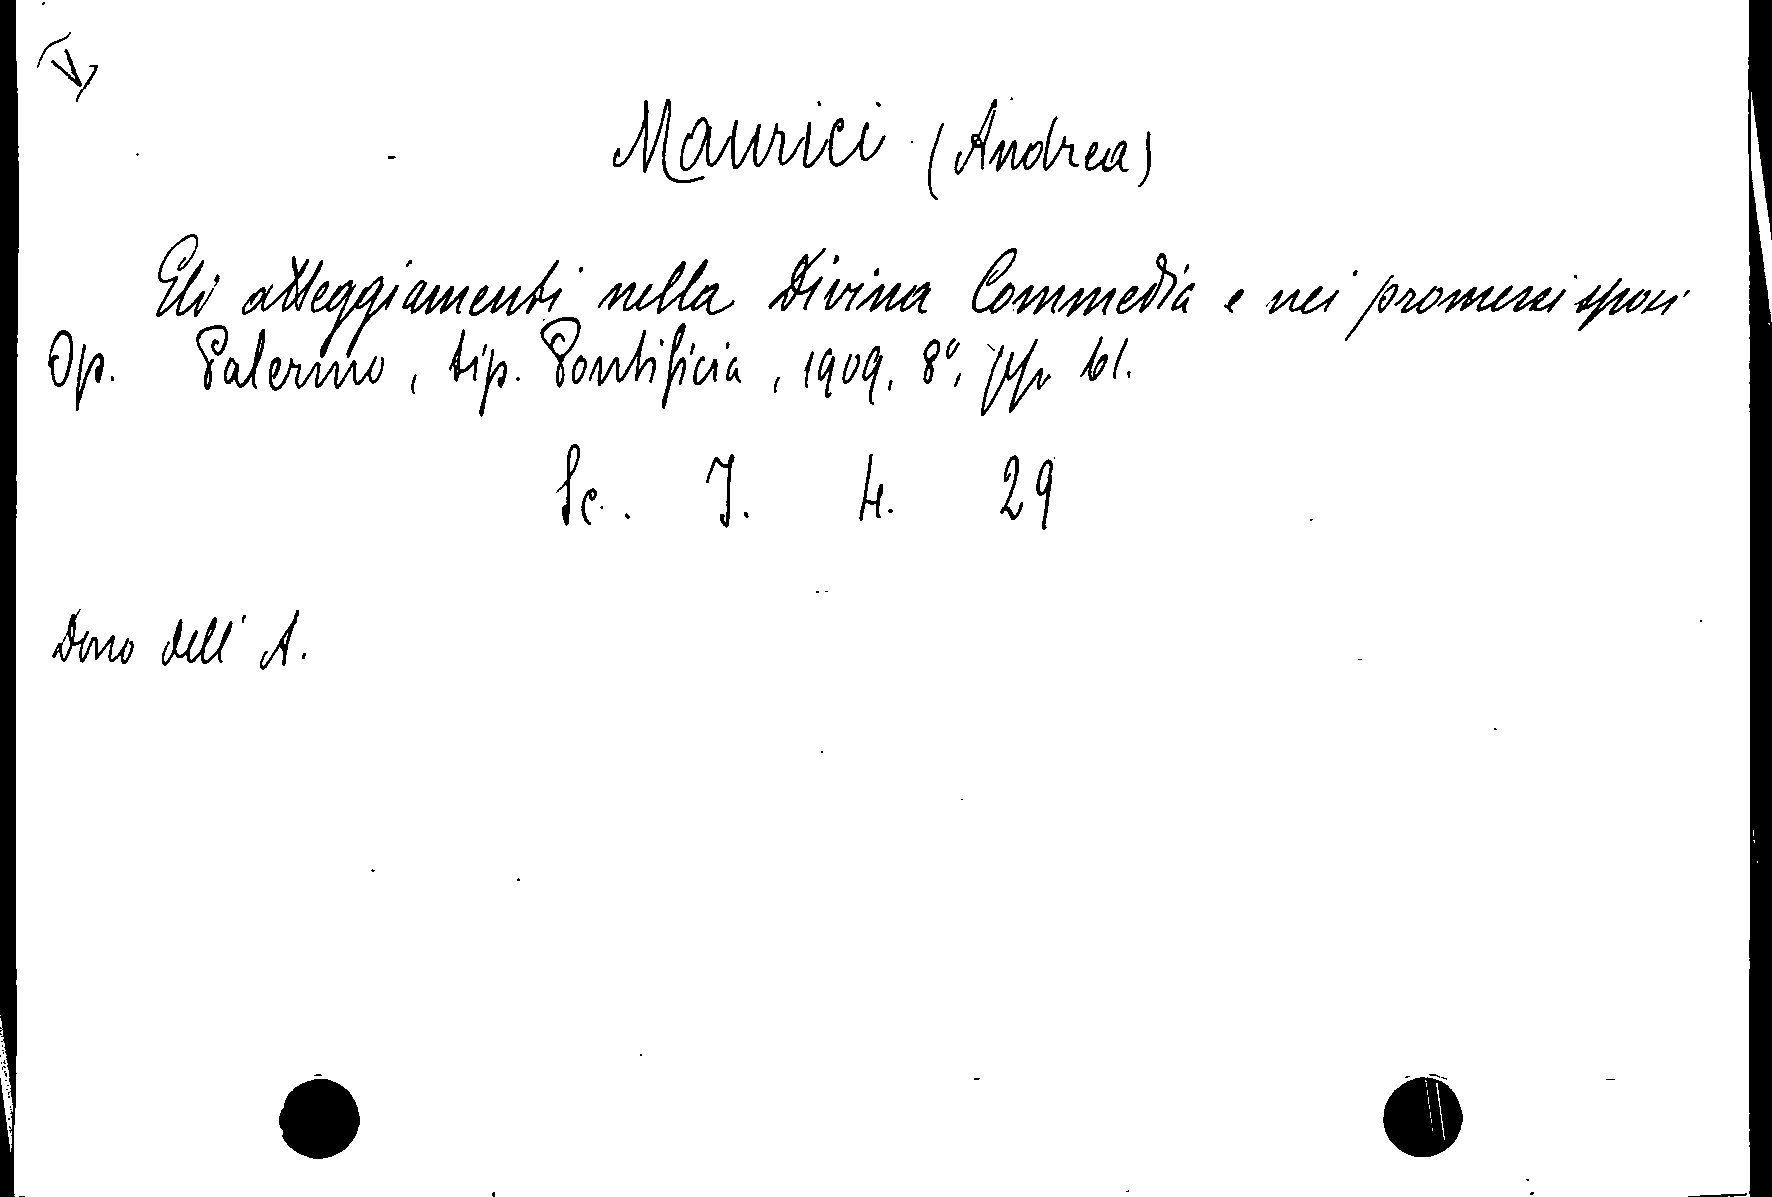 V
Maurici (Andrea)
Gli atteggiamenti nella Divina Commedia e nei promessi sposi
Op. Palermo, tip. Pontificia, 1909, 8°, pp 61.
Sc. I. 4. 29
Dono dell' A.